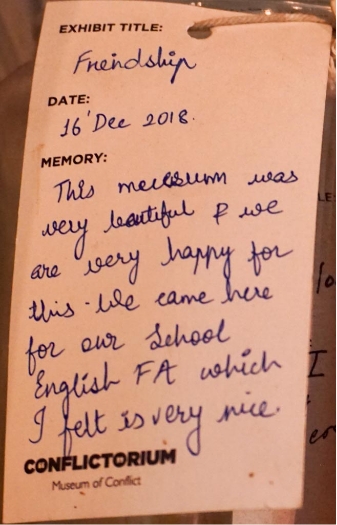 EXHIBIT TITLE:
Friendship
DATE:
16' Dec 2018.
MEMORY:
This meusum was
very beautiful & we
are very happy for
this. We came here
for our School
English FA which
I felt is very nice.
CONFLICTORIUM
Museum of Conflict
LE:
I